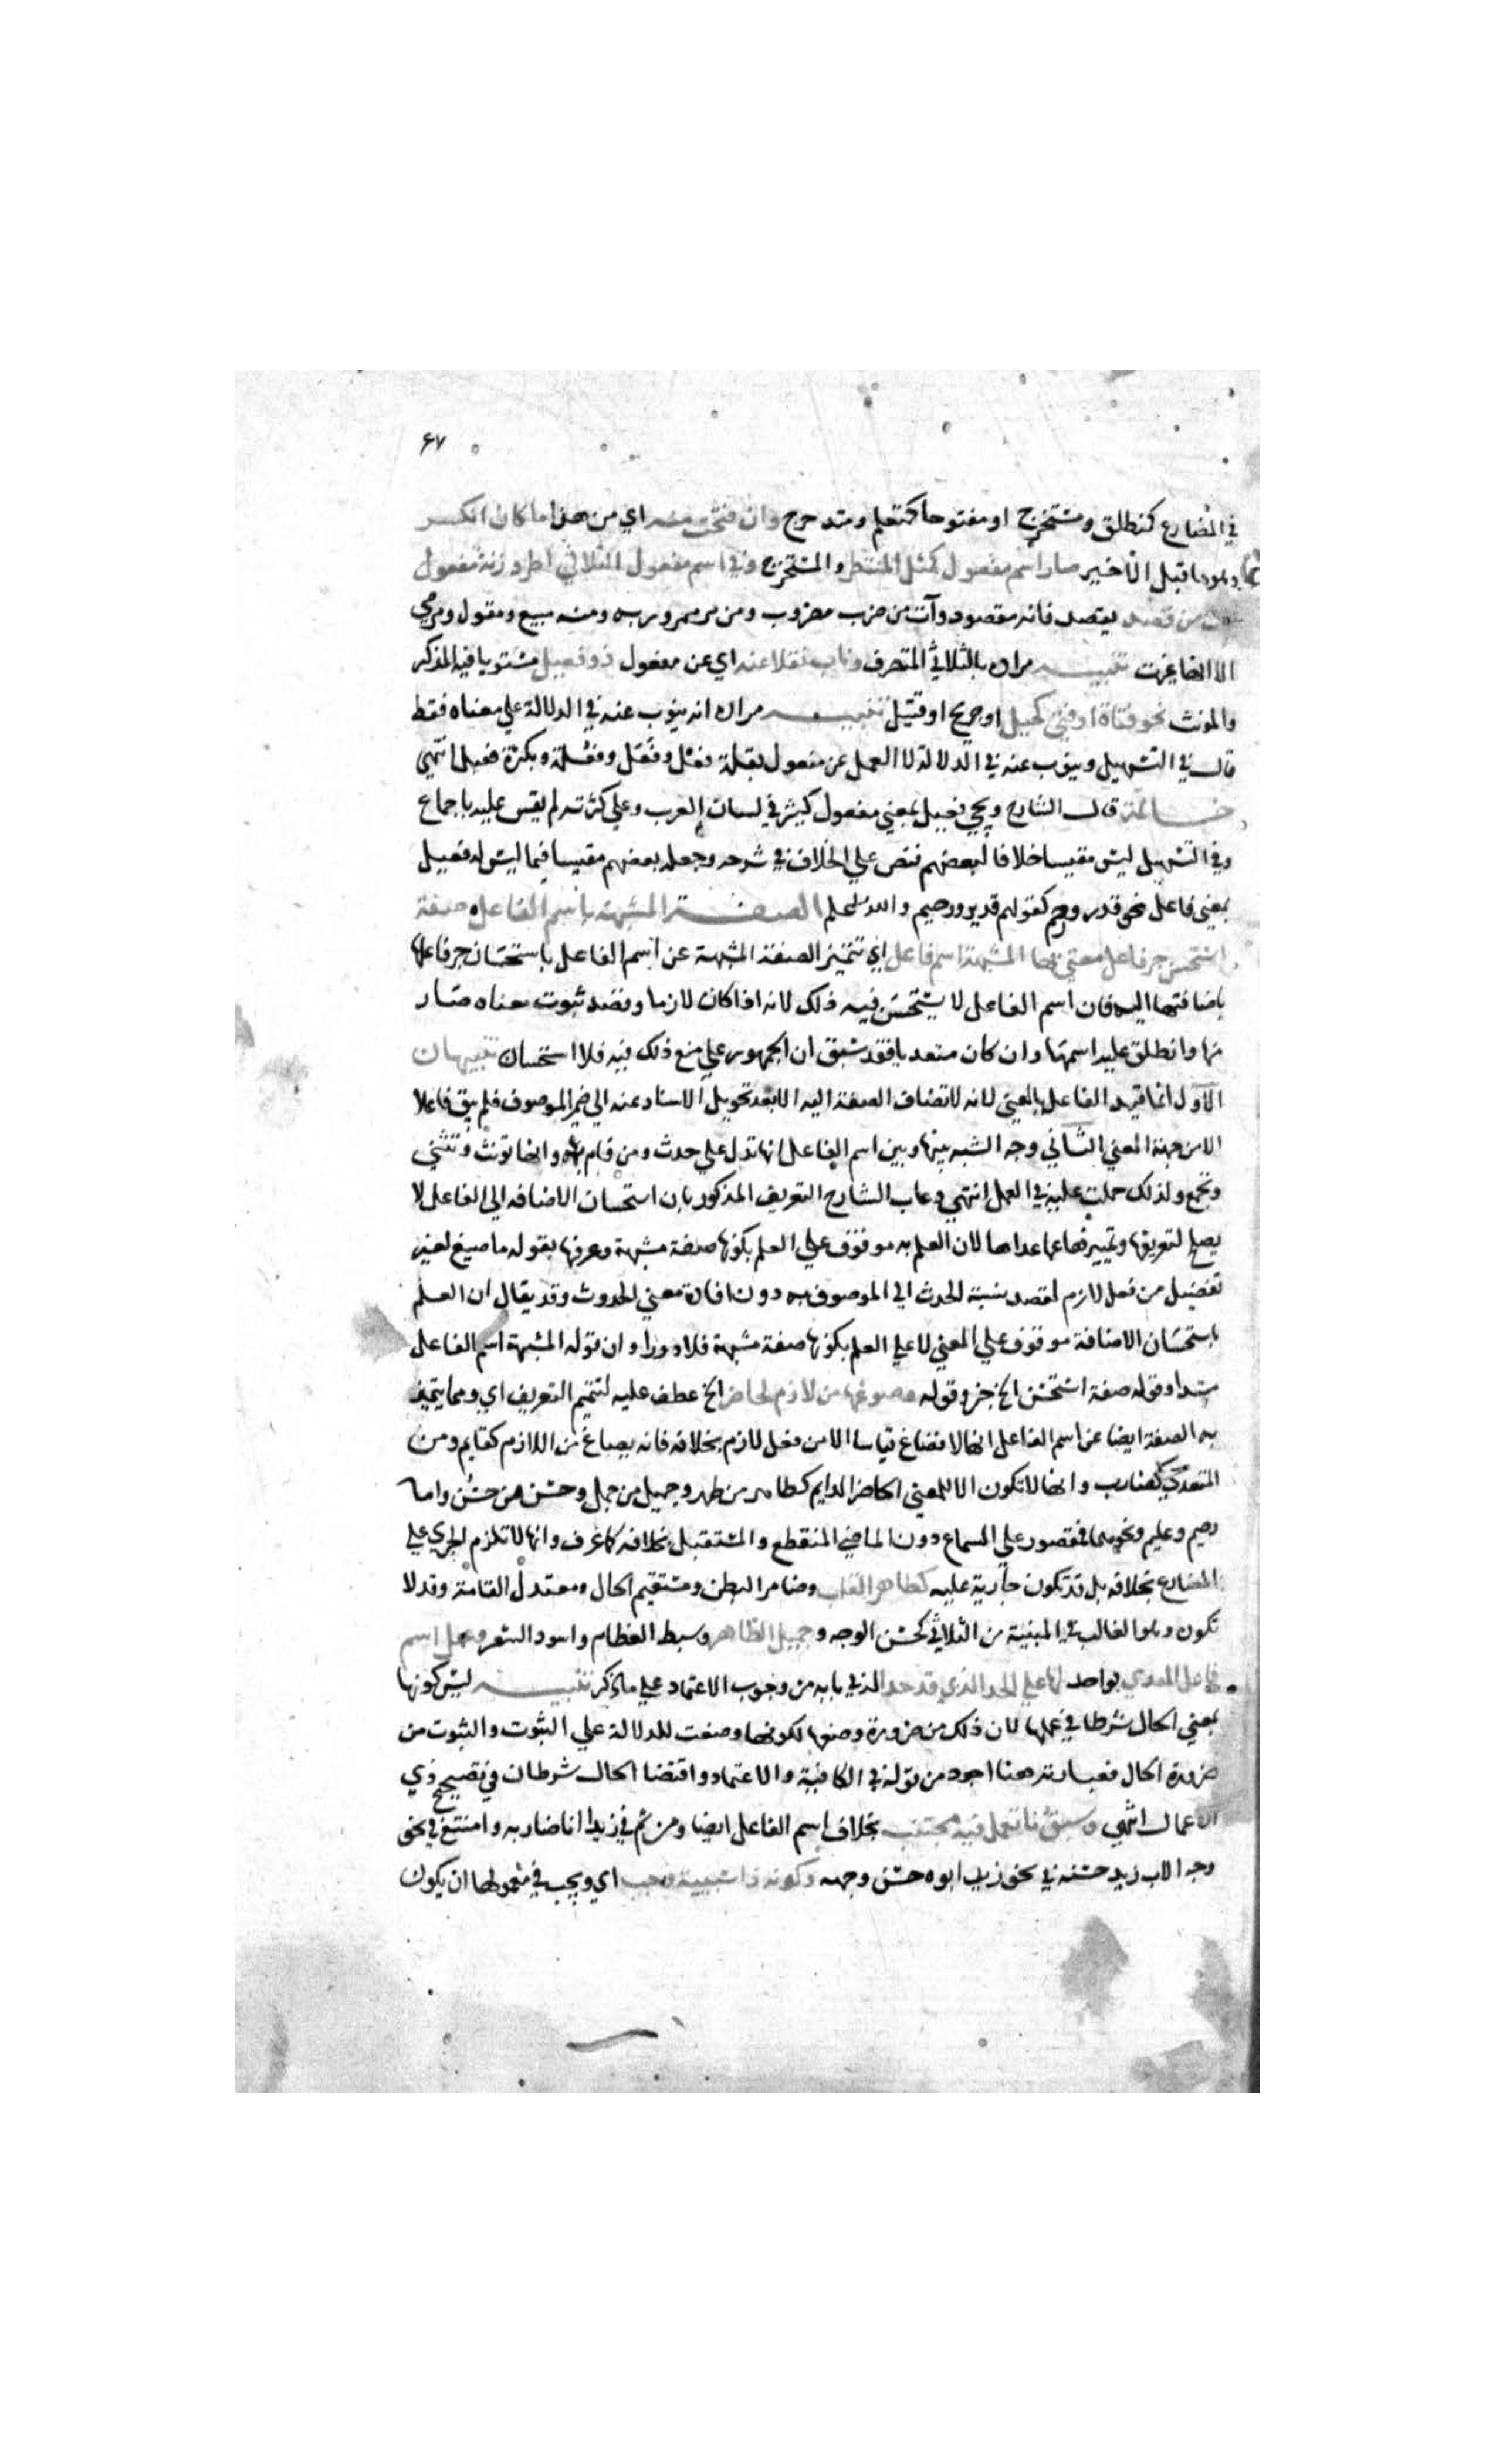 ٤٧
في المضارع كمنطلق ومستخرج او مفتوحا كمتعلم ومتدحرج وان فتحت منه اي من هذا ما كان انكسر
وهو ما قبل الاخير صار اسم مفعول كمثل المنتظر والمستخرج وفي اسم مفعول الثلاثي اطرد زنة مفعول
من قصد يقصد فانه مقصود وآت من ضرب مضروب ومن مر ممرور به ومنه مبيع ومقول ومرمي
الا انها غيرت تنبيه مراده بالثلاثي المتصرف وناب نقلا عنه اي عن مفعول ذو فعيل مستويا فيه المذكر
والمونث نحو فتاة او فتى كحيل او جريح او قتيل تنبيه مراده انه ينوب عنه في الدلالة علي معناه فقط
قال في التسهيل وينوب عنه في الدلالة لا العمل عن مفعول بقلة فعل وفعل وفعلة وبكثرة فعيل انتهي
خاتمة قال الشارح ومجي فعيل بمعني مفعول كثير في لسان العرب وعلي كثرته لم يقس عليه باجماع
وفي التسهيل ليس مقيسا خلافا لبعضهم فنص علي الخلاف في شرحه وجعله بعضهم مقيسا فيما ليس له فعيل
بمعني فاعل نحو قدر ورحم كقولهم قدير ورحيم والله اعلم الصفة المشبهة باسم الفاعل صفة
استحسن جر فاعل معني بها المشبهة اسم فاعل اي تتميز الصفة المشبهة عن اسم الفاعل باستحسان جر فاعلها
باضافتها اليه فان اسم الفاعل لا يستحسن فيه ذلك لانه اذا كان لازما وقصد ثبوت معناه صار
منها وانطلق عليه اسمها وان كان متعديا فقد سبق ان الجمهور علي منع ذلك فيه فلا استحسان تنبيهان
الاول انما قيد الفاعل بالمعني لانه لا تضاف الصفة اليه الا بعد تحويل الاسناد عنه الي ضمير الموصوف فلم يبق فاعلا
الا من جهة المعني الثاني وجه الشبه بينها وبين اسم الفاعل انها تدل علي حدث ومن قام به وانها تونث وتثني
وتجمع ولذلك حملت عليه في العمل انتهي وعاب الشارح التعريف المذكور بان استحسان الاضافه الي الفاعل لا
يصلح لتعريفها وتمييزها عما عداها لان العلم به موقوف علي العلم بكونها صفة مشبهة وعرفها بقوله ما صيغ لغير
تفضيل من فعل لازم لقصد نسبة الحدث الي الموصوف به دون افادة معني الحدوث وقد يقال ان العلم
باستحسان الاضافة موقوف علي المعني لا علي العلم بكونها صفة مشبهة فلا دور او ان قوله المشبهة اسم الفاعل
مبتدا وقوله صفة استحسن الخ خبر وقوله وصوغها من لازم لحاضر الخ عطف عليه لتتميم التعريف اي ومما يتميز
به الصفة ايضا عن اسم الفاعل انها لا تصاغ قياسا الا من فعل لازم بخلافه فانه يصاغ من اللازم كقايم ومن
المتعدي كضارب وانها لا تكون الا للمعني الحاضر الدايم كطاهر من طهر وجميل من جمل وحسن من حسن واما
رحيم وعليم ونحوهما فمقصور علي السماع دون الماضي المنقطع والمستقبل بخلافه كما عرف وانها لا تلزم الجري علي
المضارع بخلافه بل قد تكون جارية عليه كطاهر القلب وضامر البطن ومستقيم الحال ومعتدل القامة وقد لا
تكون وهو الغالب في المبنية من الثلاثي كحسن الوجه وجميل الظاهر وسبط العظام واسود الشعر وعمل اسم
فاعل المعدي بواحد لها علي الحد الذي قد حدا الذي بابه من وجوب الاعتماد علي ما ذكر تنبيه ليس كونها
بمعني الحال شرطا في عملها لان ذلك من ضرورة وضعها لكونها وضعت للدلالة علي الثبوت والثبوت من
ضرورة الحال فعبارته هنا اجود من قوله في الكافية والاعتماد واقتضا الحال شرطان في تصحيح ذي
الاعمال انتهي وسبق ما تعمل فيه مجتنب بخلاف اسم الفاعل ايضا ومن ثم في زيدا انا ضاربه وامتنع في نحو
وجه الاب زيد حسنه في نحو زيد ابوه حسن وجهه وكونه ذا سببية وجب اي ويجب في معمولها ان يكون